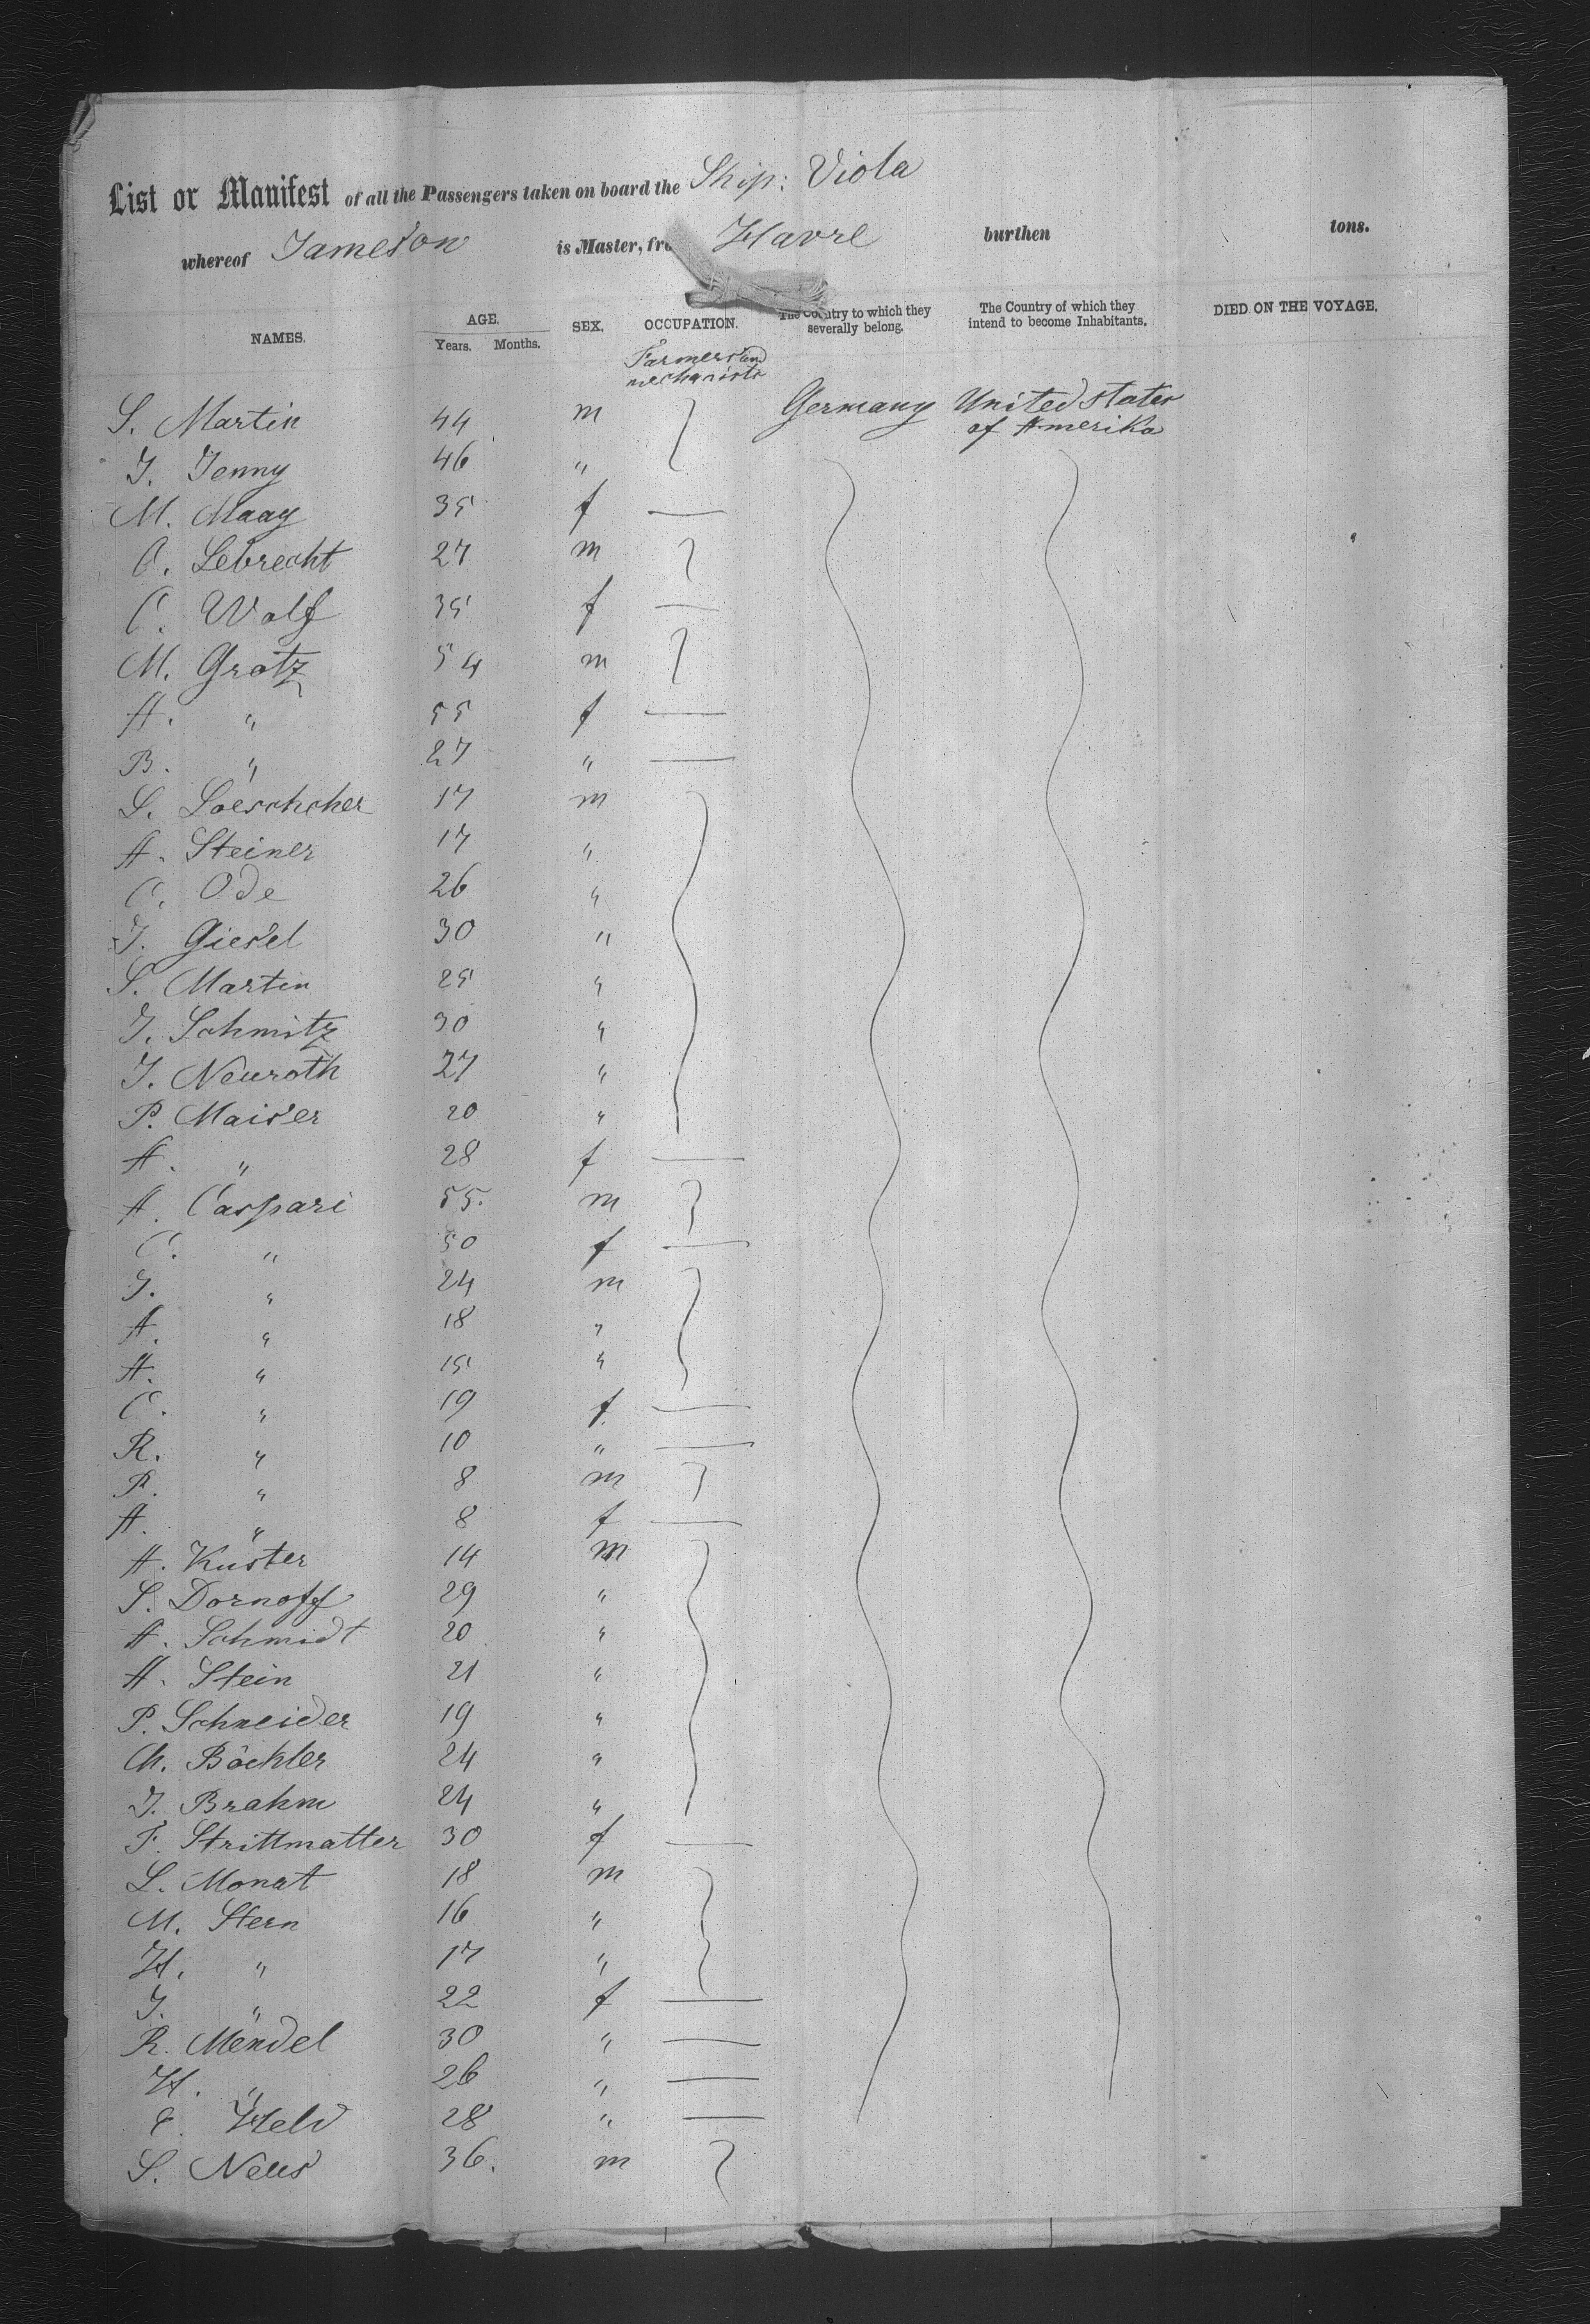 List or Manifest of all the Passengers taken on board the Ship: Viola
whereof Jameson is Master, fro Havre burthen tons.
NAMES. AGE. Years. Months. SEX. OCCUPATION. The Country to which they severally belong. The Country of which they intend to become Inhabitants. DIED ON THE VOYAGE.
Farmers and
mechanists
S. Martin 44 m Germany United States
of Amerika
J. Jenny 46 "
M. Maay 35 f —
C. Lebrecht 27 m
C. Wolf 35 f —
M. Grotz 54 m
A. " 55 f —
B. " 27 " —
L. Loeschcher 17 m
A. Steiner 17 "
C. Ode 26 "
J. Giesel 30 "
S. Martin 25 "
J. Schmitz 30 "
J. Neuroth 27 "
P. Maiser 20 "
A. " 28 f —
A. Caspari 55. m
C. " 50 f —
J. " 24 m
A. " 18 "
A. " 15 "
C. " 19 f. —
R. " 10 " —
P. " 8 m
A. " 8 f —
A. Küster 14 m
S. Dornoff 29 "
A. Schmidt 20 "
A. Stein 21 "
P. Schneider 19 "
Ch. Böckler 24 "
J. Brahm 24 "
F. Strittmatter 30 f —
L. Monat 18 m
M. Stern 16 "
H. " 17 "
J. " 22 f —
R. Mendel 30 " —
H. " 26 " —
Held 28 " —
S. Neus 36. m